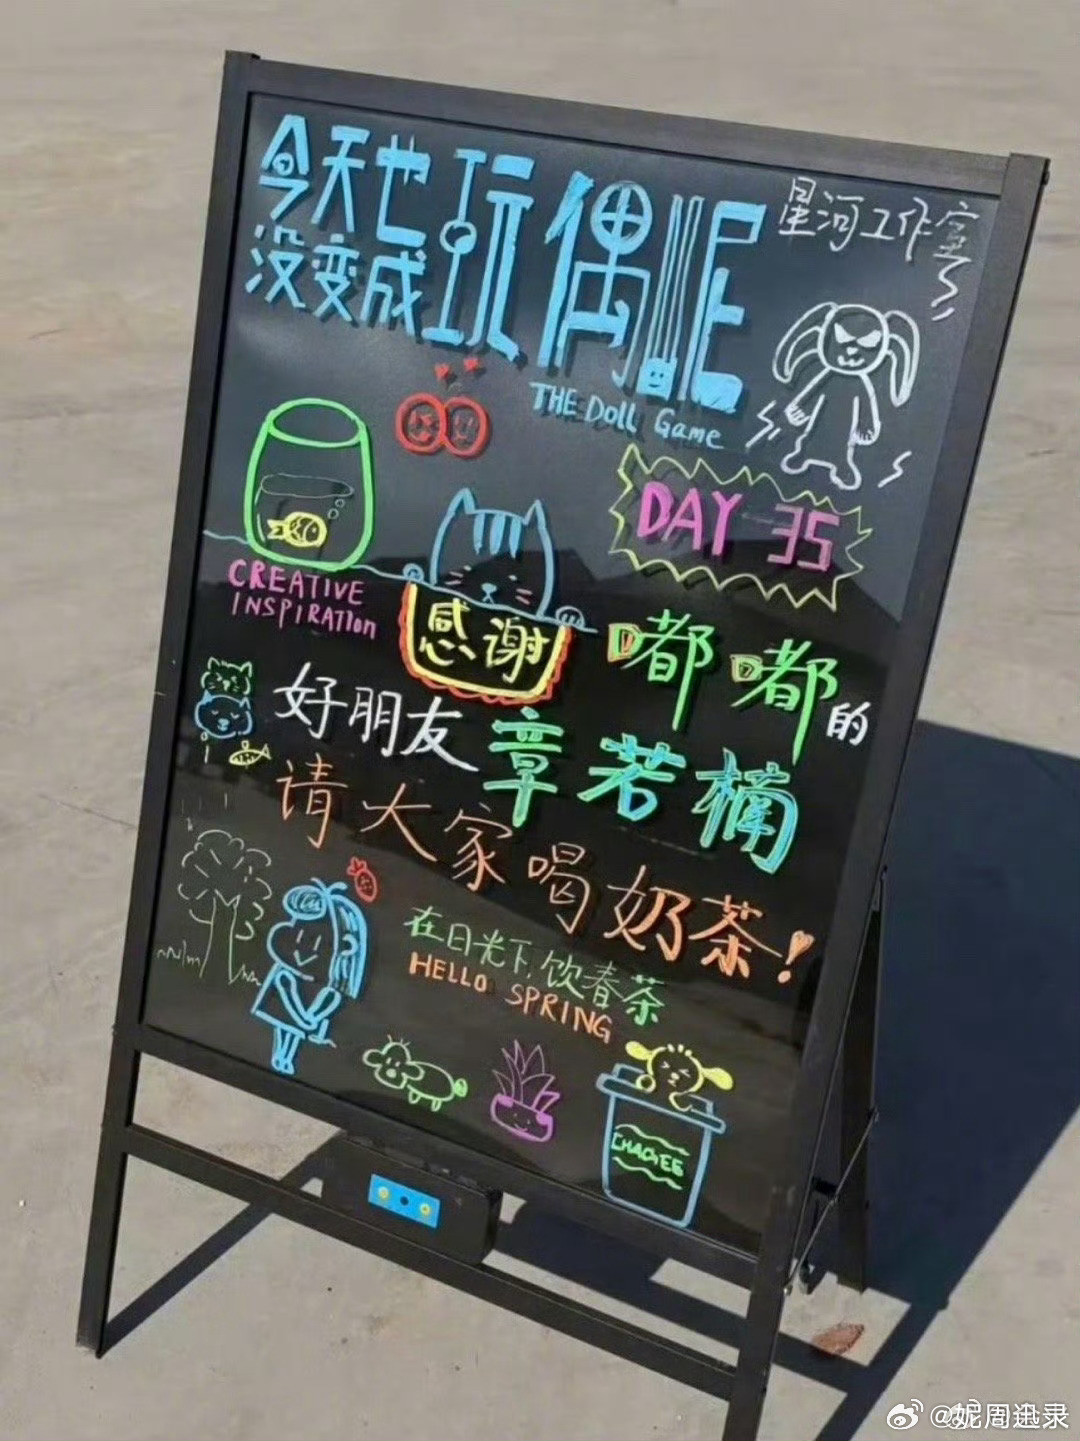 今天也
没变成
玩偶呢
星河工作室
THE Doll Game
DAY 35
CREATIVE
INSPIRATIOn
感谢
嘟嘟的
好朋友章若楠
请大家喝奶茶!
在日光下,饮春茶
HELLO SPRING
CHAGEE
@妮周迅录